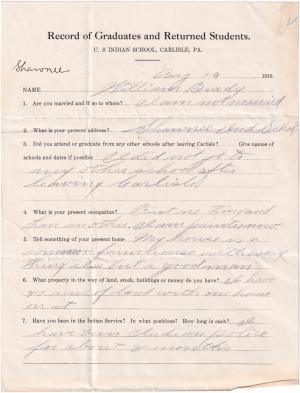 Record of Graduates and Returned Students.
U. S INDIAN SCHOOL, CARLISLE, PA.
Shawnee
Aug 19 1910.
NAME William Brady
1. Are you married and if so to whom? I am not married
2. What is your present address? Shawnee Ind School
3. Did you attend or graduate from any other schools after leaving Carlisle? Give names
of schools and dates if possible I did not go to
any other school after
leaving Carlisle
4. What is your present occupation? First one thing and
than another. I am painter now.
5. Tell something of your present home My house is a
common farm house with every
thing else but a good man
6. What property in the way of land, stock, buildings or money do you have? I have
acres of land with one house
on it
7. Have you been in the Indian Service? In what positions? How long in each? I
have been Indian police
for about 2 months